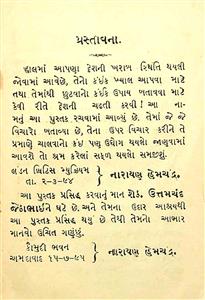 પ્રસ્તાવના.
હાલમાં આપણા દેશની ખરાબ સ્થિતિ થયલી
જોવામાં આવેછે, તેનો કંઈક ખ્યાલ આપવા માટે
તથા તેમાંથી છુટવાનો કંઈક ઉપાય બતાવવા માટે
કેવી રીતે દેશની ચઢતી કરવી! આ ના-
મનું આ પુસ્તક રચવામાં આવ્યું છે. તેમાં જે જે
વિચારો બતાવ્યા છે, તેના ઉપર વિચાર કરીને તે
પ્રમાણે ચાલવાનો કંઈ પણ ઉદ્યોગ થયલો જાણવામાં
આવશે તો શ્રમ કરેલો સફળ થયલો સમજીશું.
લંડન બ્રિટિસ મ્યુઝિયમ
તા. ૨-૩-૯૪
નારાયણ હેમચંદ્ર.
આ પુસ્તક પ્રસિદ્ધ કરવાનું માન શેઠ. ઉત્તમચંદ
જેઠાભાઈને ઘટે છે. અને તેમના ઉદાર આશ્રયથી
આ પુસ્તક પ્રસિદ્ધ થયું છે તેથી તેમનો આભાર
માનવો ઉચિત ગણું છું.
કૌમુદી ભવન
અમદાવાદ ૧૫-૭-૯૫
નારાયણ હેમચંદ્ર.